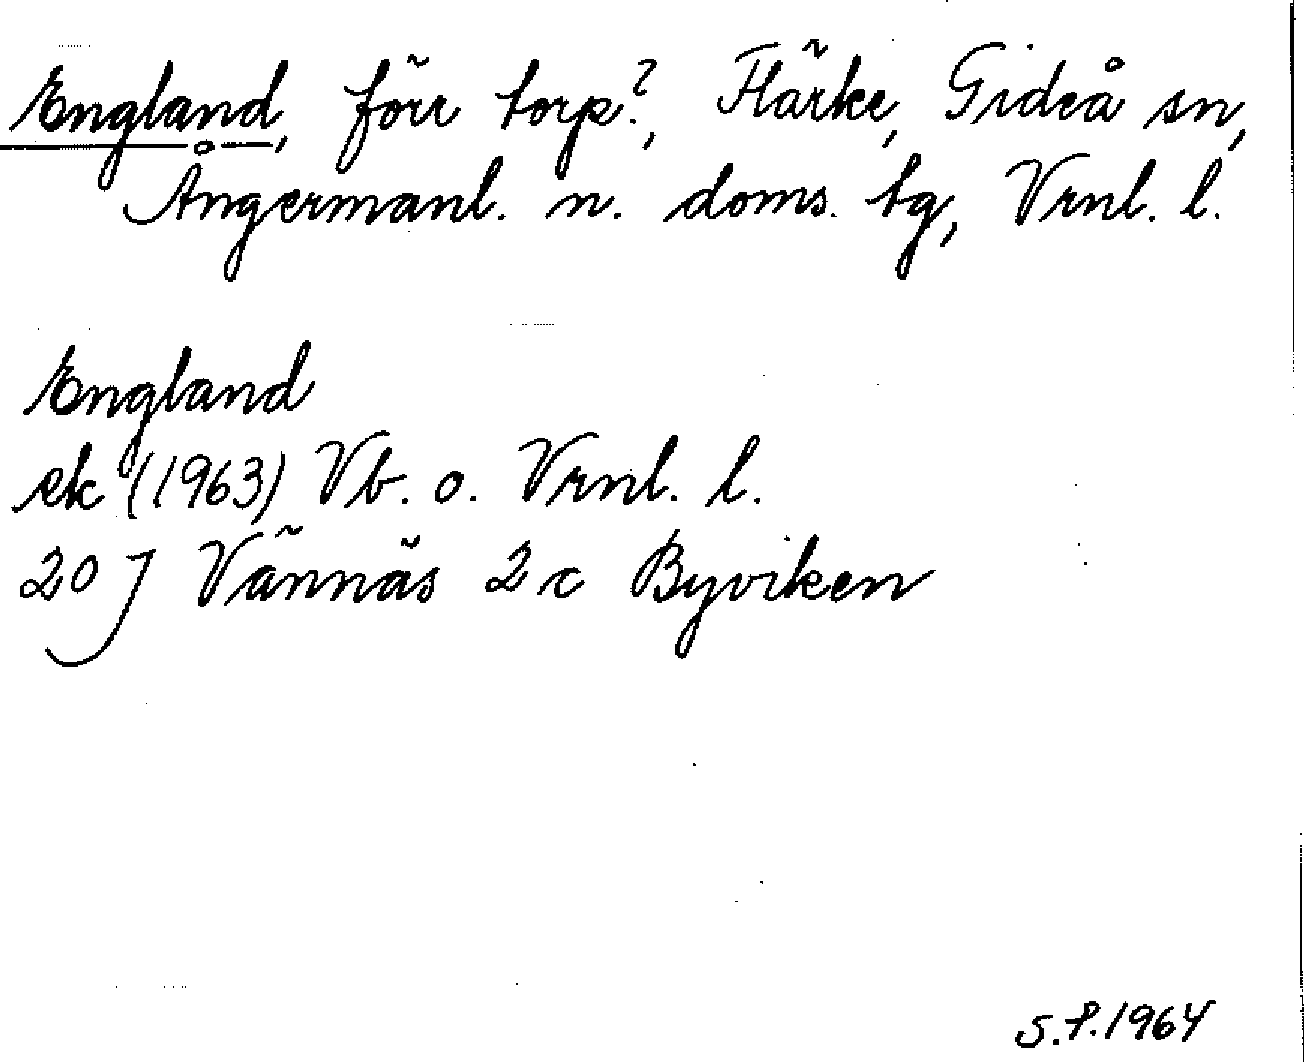 England, förr torp?, Flärke, Gideå sn,
Ångermanl. n. doms. tg, Vrnl. l.
England
ek (1963) Vb. o. Vrnl. l.
20 J Vännäs 2 c Byviken
S.P.1964